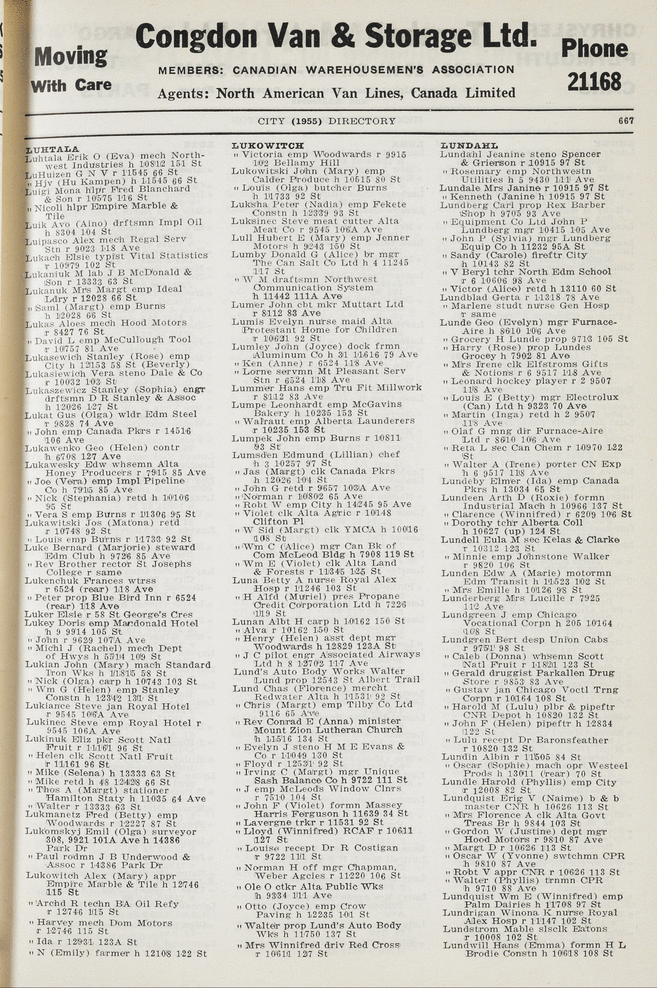 Moving
With Care
Congdon Van & Storage Ltd.
MEMBERS: CANADIAN WAREHOUSEMEN'S ASSOCIATION
Agents: North American Van Lines, Canada Limited
Phone
21168
CITY (1955) DIRECTORY
667
LUHTALA
Luhtala Erik O (Eva) mech North-
west Industries h 10812 151 St
LuHuizen G N V r 11545 66 St
" Hjv (Hu Kampen) h 11545 66 St
Luigi Mona hlpr Fred Blanchard
& Son r 10575 116 St
" Nicoli hlpr Empire Marble &
Tile
Luik Avo (Aino) drftsmn Impl Oil
h 8304 104 St
Luipasco Alex mech Regal Serv
Stn r 9023 118 Ave
Lukach Elsie typist Vital Statistics
r 10979 102 St
Lukaniuk M lab J B McDonald &
Son r 13333 63 St
Lukanuk Mrs Margt emp Ideal
Ldry r 12028 66 St
" Saml (Margt) emp Burns
h 12028 66 St
Lukas Aloes mech Hood Motors
r 8427 76 St
" David L emp McCullough Tool
r 10757 81 Ave
Lukasevich Stanley (Rose) emp
City h 12153 58 St (Beverly)
Lukasiewich Vera steno Dale & Co
r 10032 103 St
Lukaszewicz Stanley (Sophia) engr
drftsmn D R Stanley & Assoc
h 12026 127 St
Lukat Gus (Olga) wldr Edm Steel
r 9828 74 Ave
" John emp Canada Pkrs r 14516
106 Ave
Lukawenko Geo (Helen) contr
h 6708 127 Ave
Lukawesky Edw whsemn Alta
Honey Producers r 7915 85 Ave
" Joe (Vera) emp Impl Pipeline
Co h 7915 85 Ave
" Nick (Stephania) retd h 10106
95 St
" Vera S emp Burns r 11306 95 St
Lukawitski Jos (Matona) retd
r 10748 92 St
" Louis emp Burns r 11733 92 St
Luke Bernard (Marjorie) steward
Edm Club h 9726 85 Ave
" Rev Brother rector St Josephs
College r same
Lukenchuk Frances wtrss
r 6524 (rear) 118 Ave
" Peter prop Blue Bird Inn r 6524
(rear) 118 Ave
Luker Elsie r 58 St George's Cres
Lukey Doris emp Macdonald Hotel
h 9 9914 105 St
" John r 9629 107A Ave
" Michl J (Rachel) mech Dept
of Hwys h 5314 109 St
Lukian John (Mary) mach Standard
Iron Wks h 11815 58 St
" Nick (Olga) carp h 10742 103 St
" Wm G (Helen) emp Stanley
Constn h 12342 131 St
Lukiance Steve jan Royal Hotel
r 9545 106A Ave
Lukinec Steve emp Royal Hotel r
9545 106A Ave
Lukinuk Eliz pkr Scott Natl
Fruit r 11161 96 St
" Helen clk Scott Natl Fruit
r 11161 96 St
" Mike (Selena) h 13333 63 St
" Mike retd h 48 12428 66 St
" Thos A (Margt) stationer
Hamilton Staty h 11035 64 Ave
" Walter r 13333 63 St
Lukmanetz Fred (Betty) emp
Woodwards r 12227 87 St
Lukomskyj Emil (Olga) surveyor
308, 9921 101A Ave h 14386
Park Dr
" Paul rodmn J B Underwood &
Assoc r 14386 Park Dr
Lukowitch Alex (Mary) appr
Empire Marble & Tile h 12746
115 St
" Archd R techn BA Oil Refy
r 12746 115 St
" Harvey mech Dom Motors
r 12746 115 St
" Ida r 12931 123A St
" N (Emily) farmer h 12108 122 St
LUKOWITCH
" Victoria emp Woodwards r 9915
102 Bellamy Hill
Lukowitski John (Mary) emp
Calder Produce h 10615 80 St
" Louis (Olga) butcher Burns
h 11733 92 St
Luksha Peter (Nadia) emp Fekete
Constn h 12339 93 St
Luksinec Steve meat cutter Alta
Meat Co r 9545 106A Ave
Lull Hubert E (Mary) emp Jenner
Motors h 9243 150 St
Lumby Donald G (Alice) br mgr
The Can Salt Co Ltd h 4 11245
117 St
" W M draftsmn Northwest
Communication System
h 11442 111A Ave
Lumer John cbt mkr Muttart Ltd
r 8112 83 Ave
Lumis Evelyn nurse maid Alta
Protestant Home for Children
r 10621 92 St
Lumley John (Joyce) dock frmn
Aluminum Co h 31 11616 79 Ave
" Ken (Anne) r 6524 118 Ave
" Lorne servmn Mt Pleasant Serv
Stn r 6524 118 Ave
Lummer Hans emp Tru Fit Millwork
r 8112 83 Ave
Lumpe Leonhardt emp McGavins
Bakery h 10235 153 St
" Waltraut emp Alberta Launderers
r 10235 153 St
Lumpek John emp Burns r 10811
93 St
Lumsden Edmund (Lillian) chef
h 3 10257 97 St
" Jas (Margt) clk Canada Pkrs
h 12026 104 St
" John G retd r 9657 103A Ave
" Norman r 10802 65 Ave
" Robt W emp City h 14245 95 Ave
" Violet clk Alta Agric r 10148
Clifton Pl
" W Sid (Margt) clk YMCA h 10016
108 St
" Wm C (Alice) mgr Can Bk of
Com McLeod Bldg h 7908 119 St
" Wm E (Violet) clk Alta Land
& Forests r 11345 125 St
Luna Betty A nurse Royal Alex
Hosp r 11246 103 St
" H Alfd (Muriel) pres Propane
Credit Corporation Ltd h 7226
119 St
Lunan Albt H carp h 10162 150 St
" Alva r 10162 150 St
" Henry (Helen) asst dept mgr
Woodwards h 12829 123A St
" J C pilot engr Associated Airways
Ltd h 8 12702 117 Ave
Lund's Auto Body Works Walter
Lund prop 12543 St Albert Trail
Lund Chas (Florence) mercht
Redwater Alta h 11531 92 St
" Chris (Margt) emp Tilby Co Ltd
9116 65 Ave
" Rev Conrad E (Anna) minister
Mount Zion Lutheran Church
h 11516 134 St
" Evelyn J steno H M E Evans &
Co r 11049 130 St
" Floyd r 12531 92 St
" Irving C (Margt) mgr Unique
Sash Balance Co h 9722 111 St
" J emp McLeods Window Clnrs
r 7510 104 St
" John F (Violet) formn Massey
Harris Ferguson h 11639 34 St
" Lavergne trkr r 11531 92 St
" Lloyd (Winnifred) RCAF r 10611
127 St
" Louise recept Dr R Costigan
r 9722 111 St
" Norman H off mgr Chapman,
Weber Agcies r 11220 106 St
" Ole O otkr Alta Public Wks
h 9334 111 Ave
" Otto (Joyce) emp Crow
Paving h 12235 101 St
" Walter prop Lund's Auto Body
Wks h 11750 137 St
" Mrs Winnifred driv Red Cross
r 10611 127 St
LUNDAHL
Lundahl Jeanine steno Spencer
& Grierson r 10915 97 St
" Rosemary emp Northwestn
Utilities h 5 9430 111 Ave
Lundale Mrs Janine r 10915 97 St
" Kenneth (Janine) h 10915 97 St
Lundberg Carl prop Rex Barber
Shop h 9705 93 Ave
" Equipment Co Ltd John P
Lundberg mgr 10415 105 Ave
" John P (Sylvia) mgr Lundberg
Equip Co h 11232 95A St
" Sandy (Carole) fireftr City
h 10143 82 St
" V Beryl tchr North Edm School
r 6 10606 98 Ave
" Victor (Alice) retd h 13110 60 St
Lundblad Gerta r 11318 78 Ave
" Marlene studt nurse Gen Hosp
r same
Lunde Geo (Evelyn) mgr Furnace-
Aire h 8610 106 Ave
" Grocery H Lunde prop 9713 105 St
" Harry (Rose) prop Lundes
Grocey h 7902 81 Ave
" Mrs Irene clk Elfstroms Gifts
& Notions r 6 9517 118 Ave
" Leonard hockey player r 2 9507
118 Ave
" Louis E (Betty) mgr Electrolux
(Can) Ltd h 9323 70 Ave
" Martin (Inga) retd h 2 9507
118 Ave
" Olaf G mng dir Furnace-Aire
Ltd r 8610 106 Ave
" Reta L sec Can Chem r 10970 122
St
" Walter A (Irene) porter CN Exp
h 6 9517 118 Ave
Lundeby Elmer (Ida) emp Canada
Pkrs h 13034 65 St
Lundeen Arth D (Roxie) formn
Industrial Mach h 10966 137 St
" Clarence (Winnifred) r 6209 106 St
" Dorothy tchr Alberta Coll
h 10627 (up) 124 St
Lundell Eula M sec Kelas & Clarke
r 10312 123 St
" Minnie emp Johnstone Walker
r 9820 106 St
Lunden Edm A (Marie) motormn
Edm Transit h 11523 102 St
" Mrs Emille h 10126 98 St
Lunderberg Mrs Lucille r 7925
112 Ave
Lundgreen J emp Chicago
Vocational Corpn h 205 10164
108 St
Lundgren Bert desp Union Cabs
r 9751 98 St
" Caleb (Donna) whsemn Scott
Natl Fruit r 11821 123 St
" Gerald druggist Parkallen Drug
Store r 9853 83 Ave
" Gustav jan Chicago Voctl Trng
Corpn r 10164 108 St
" Harold M (Lulu) plbr & pipeftr
CNR Depot h 10820 132 St
" John F (Helen) pipeftr h 12834
122 St
" Lulu recept Dr Baronsfeather
r 10820 132 St
Lundin Albin r 11505 84 St
" Oscar (Sophie) mach opr Westeel
Prods h 13011 (rear) 70 St
Lundle Harold (Phyllis) emp City
r 12008 82 St
Lundquist Eric V (Naime) b & b
master CNR h 10626 113 St
" Mrs Florence A clk Alta Govt
Treas Br h 9844 103 St
" Gordon W (Justine) dept mgr
Hood Motors r 9810 87 Ave
" Margt D r 10626 113 St
" Oscar W (Yvonne) swtchmn CPR
h 9810 87 Ave
" Robt V appr CNR r 10626 113 St
" Walter (Phyllis) trnmn CPR
h 9710 88 Ave
Lundquist Wm E (Winnifred) emp
Palm Dairies h 11708 97 St
Lundrigan Winona K nurse Royal
Alex Hosp r 11147 102 St
Lundstrom Mable slsclk Eatons
r 10008 102 St
Lundwill Hans (Emma) formn H L
Brodie Constn h 10618 108 St